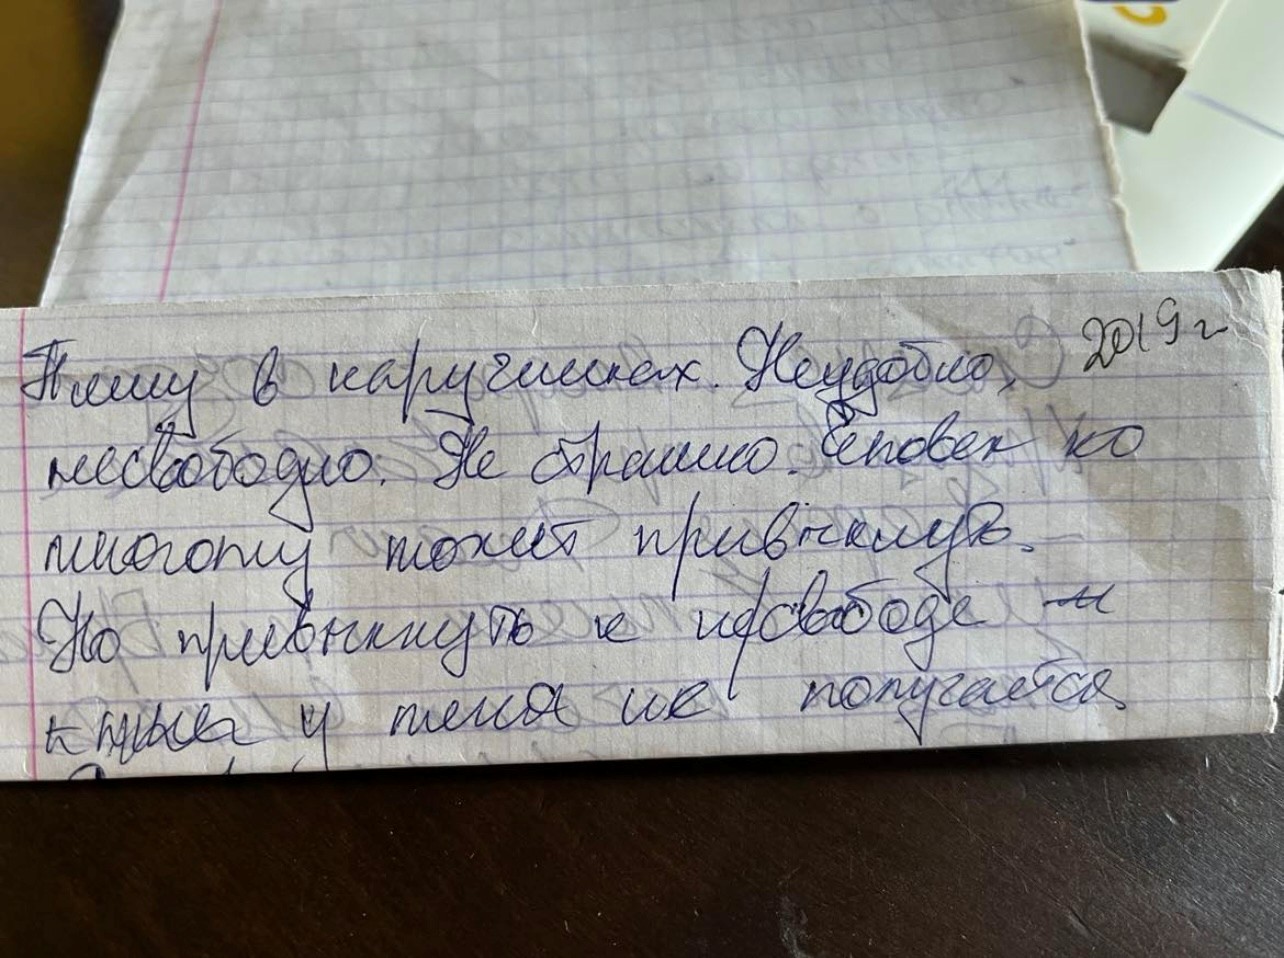 2019 г
Пишу в наручниках. Неудобно,
несвободно. Не страшно. Человек ко
многому может привыкнуть.
Но привыкнуть к несвободе и
у меня не получается